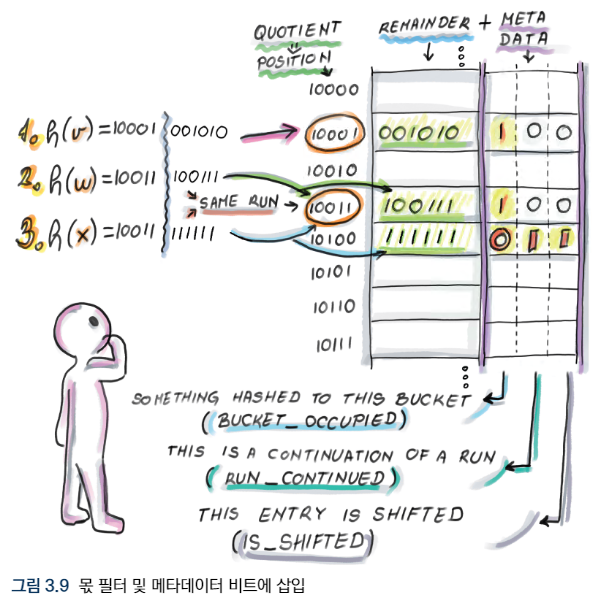 QUOTIENT
POSITION
REMAINDER + META
DATA
10000
1. h(v) = 10001 001010
10001 001010 1 0 0
10010
2. h(w) = 10011 100111
SAME RUN
10011 100111 1 0 0
3. h(x) = 10011 111111
10100 111111 0 1 1
10101
10110
10111
SOMETHING HASHED TO THIS BUCKET
(BUCKET_OCCUPIED)
THIS IS A CONTINUATION OF A RUN
(RUN_CONTINUED)
THIS ENTRY IS SHIFTED
(IS_SHIFTED)
그림 3.9 몫 필터 및 메타데이터 비트에 삽입